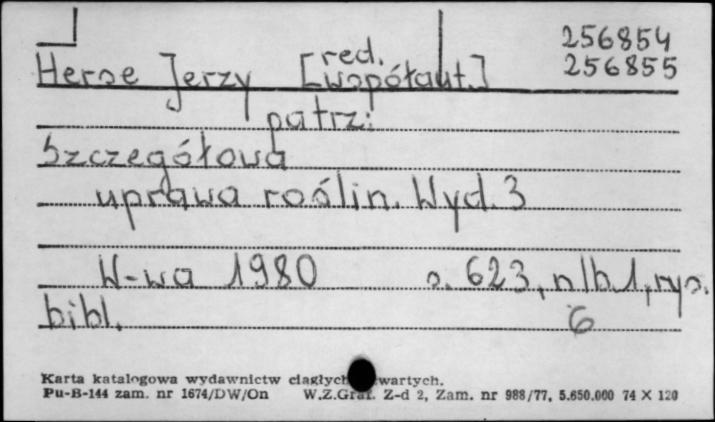 256854
Herse Jerzy [red. współaut.] 256855
patrz:
Szczegółowa
uprawa roślin. Wyd. 3
W-wa 1980 s. 623, nlb.1, rys.
bibl. 6
Karta katalogowa wydawnictw ciągłych
Pu-B-144 zam. nr 1674/DW/On W.Z.Graf. Z-d 2, Zam. nr 988/77, 5.650.000 74 X 120